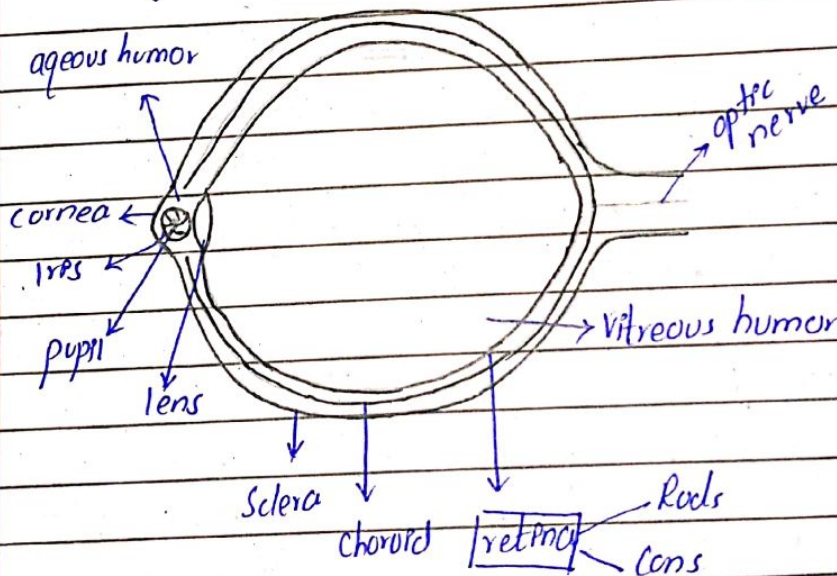 aqeous humor
optic
nerve
cornea
Iris
pupil
lens
Vitreous humor
Sclera
Choroid
retina
Rods
Cons